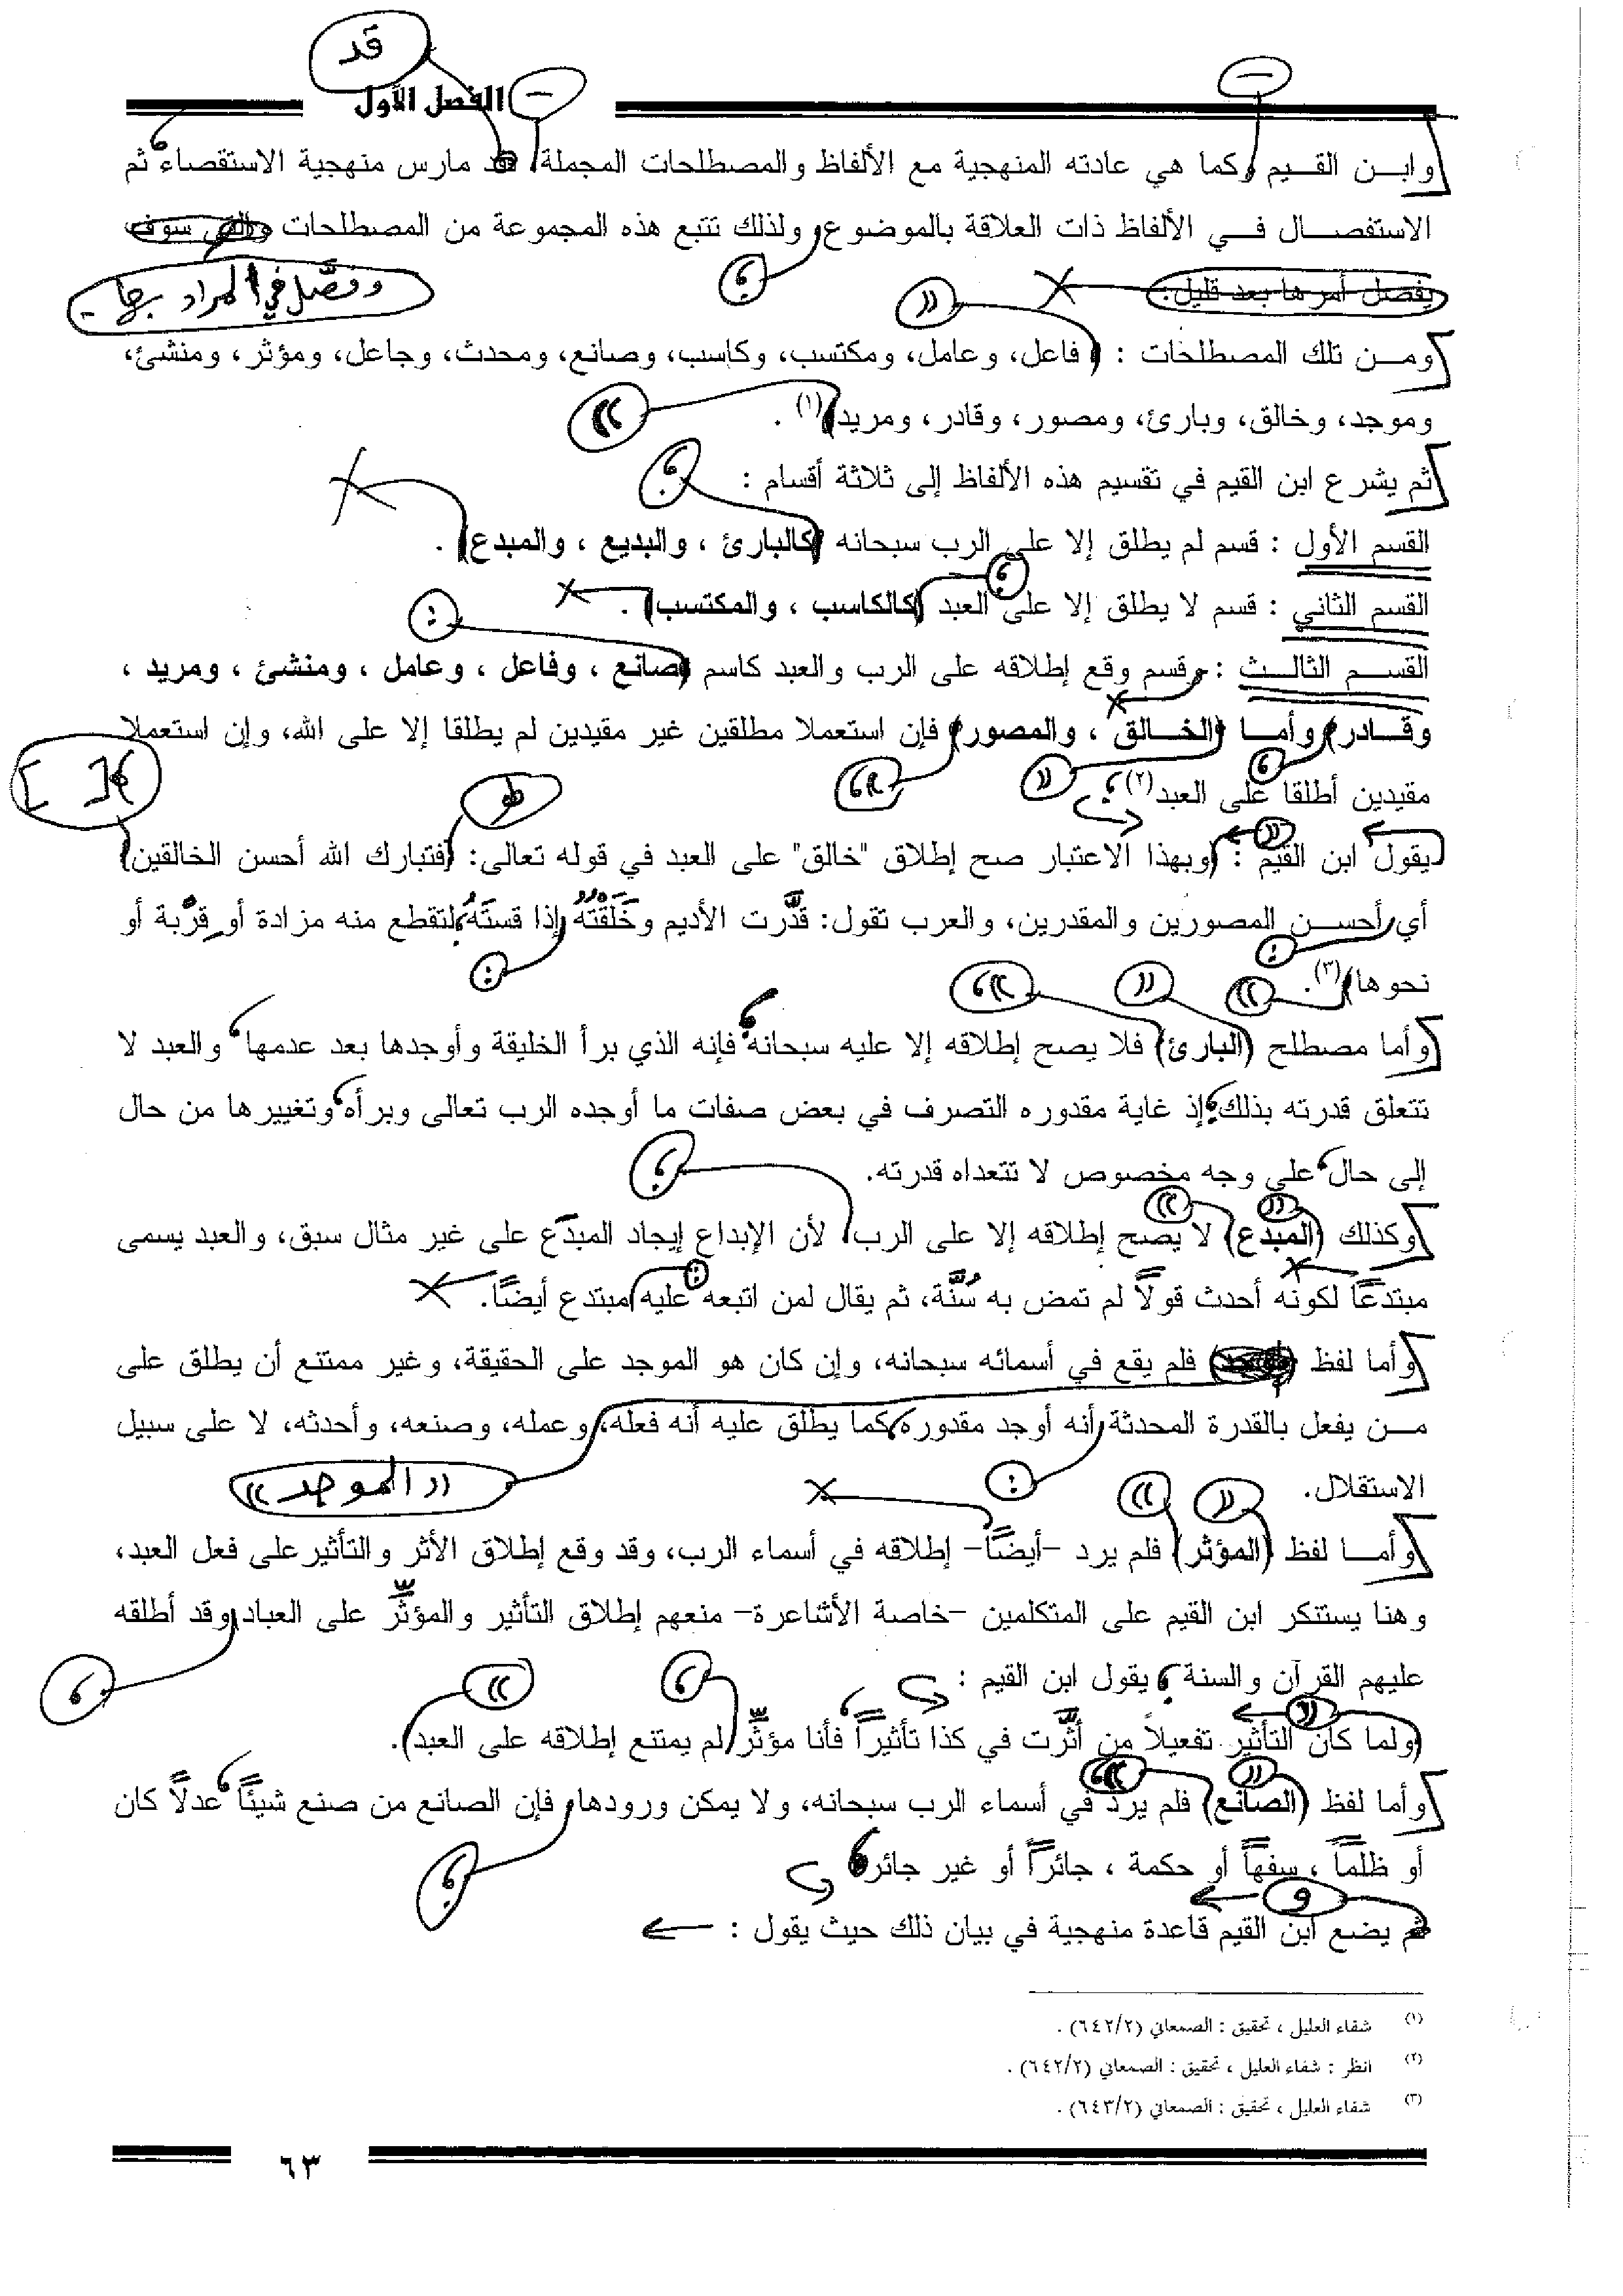 قد
الفصل الأول
وابن القيم وكما هي عادته المنهجية مع الألفاظ والمصطلحات المجملة، قد مارس منهجية الاستقصاء ثم
الاستفصال في الألفاظ ذات العلاقة بالموضوع، ولذلك تتبع هذه المجموعة من المصطلحات والتي سوف
يفصل أمرها بعد قليل.
وفصَّل في المراد بها -
ومن تلك المصطلحات : (فاعل، وعامل، ومكتسب، وكاسب، وصانع، ومحدث، وجاعل، ومؤثر، ومنشئ،
وموجد، وخالق، وبارئ، ومصور، وقادر، ومريد)(١) .
ثم يشرع ابن القيم في تقسيم هذه الألفاظ إلى ثلاثة أقسام :
القسم الأول : قسم لم يطلق إلا على الرب سبحانه (كالبارئ ، والبديع ، والمبدع) .
القسم الثاني : قسم لا يطلق إلا على العبد (كالكاسب ، والمكتسب) .
القسم الثالث : وقسم وقع إطلاقه على الرب والعبد كاسم (صانع ، وفاعل ، وعامل ، ومنشئ ، ومريد ،
وقادر) وأما (الخالق ، والمصور) فإن استعملا مطلقين غير مقيدين لم يطلقا إلا على الله، وإن استعملا
مقيدين أطلقا على العبد(٢)
يقول ابن القيم : (وبهذا الاعتبار صح إطلاق "خالق" على العبد في قوله تعالى: (فتبارك الله أحسن الخالقين)
أي أحسن المصورين والمقدرين، والعرب تقول: قدَّرت الأديم وخَلَقْتُهُ إذا قستَهُ لتقطع منه مزادة أو قِربة أو
نحوها)(٣).
وأما مصطلح (البارئ) فلا يصح إطلاقه إلا عليه سبحانه، فإنه الذي برأ الخليقة وأوجدها بعد عدمها، والعبد لا
تتعلق قدرته بذلك؛ إذ غاية مقدوره التصرف في بعض صفات ما أوجده الرب تعالى وبرأه، وتغييرها من حال
إلى حال، على وجه مخصوص لا تتعداه قدرته.
وكذلك (المبدع) لا يصح إطلاقه إلا على الرب، لأن الإبداع إيجاد المبدَع على غير مثال سبق، والعبد يسمى
مبتدعًا لكونه أحدث قولاً لم تمض به سُنَّة، ثم يقال لمن اتبعه عليه مبتدع أيضًا.
وأما لفظ فلم يقع في أسمائه سبحانه، وإن كان هو الموجد على الحقيقة، وغير ممتنع أن يطلق على
من يفعل بالقدرة المحدثة أنه أوجد مقدوره، كما يطلق عليه أنه فعله، وعمله، وصنعه، وأحدثه، لا على سبيل
الاستقلال.
((الموجد))
وأما لفظ (المؤثر) فلم يرد -أيضًا- إطلاقه في أسماء الرب، وقد وقع إطلاق الأثر والتأثير على فعل العبد،
وهنا يستنكر ابن القيم على المتكلمين -خاصة الأشاعرة- منعهم إطلاق التأثير والمؤثِّر على العباد، وقد أطلقه
عليهم القرآن والسنة، يقول ابن القيم :
(ولما كان التأثير تفعيلاً من أثَّرت في كذا تأثيراً، فأنا مؤثِّر، لم يمتنع إطلاقه على العبد).
وأما لفظ (الصانع) فلم يرد في أسماء الرب سبحانه، ولا يمكن ورودها، فإن الصانع من صنع شيئًا، عدلاً كان
أو ظلماً ، سفهاً أو حكمة ، جائراً أو غير جائر،
ثم يضع ابن القيم قاعدة منهجية في بيان ذلك حيث يقول :
(١) شفاء العليل ، تحقيق : الصمعاني (٦٤٢/٢) .
(٢) انظر : شفاء العليل ، تحقيق : الصمعاني (٦٤٢/٢) .
(٣) شفاء العليل ، تحقيق : الصمعاني (٦٤٣/٢) .
٦٣